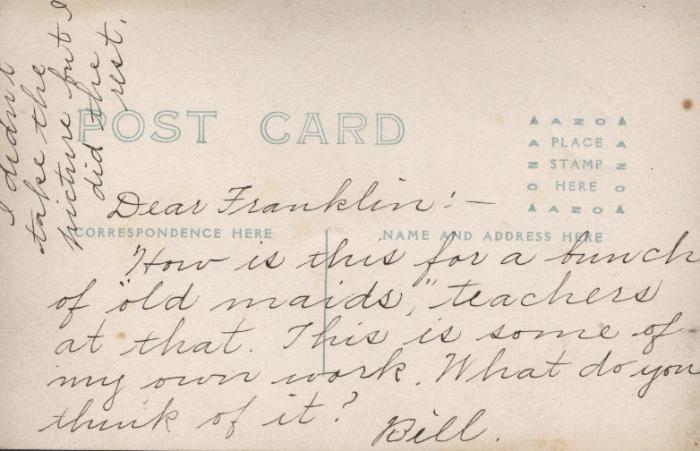 I didn't
take the
picture but I
did the
rest.
POST CARD
▲ AZO ▲
PLACE
STAMP
HERE
▲ AZO ▲
Dear Franklin:—
CORRESPONDENCE HERE
NAME AND ADDRESS HERE
How is this for a bunch
of "old maids," teachers
at that. This is some of
my own work. What do you
think of it?
Bill.